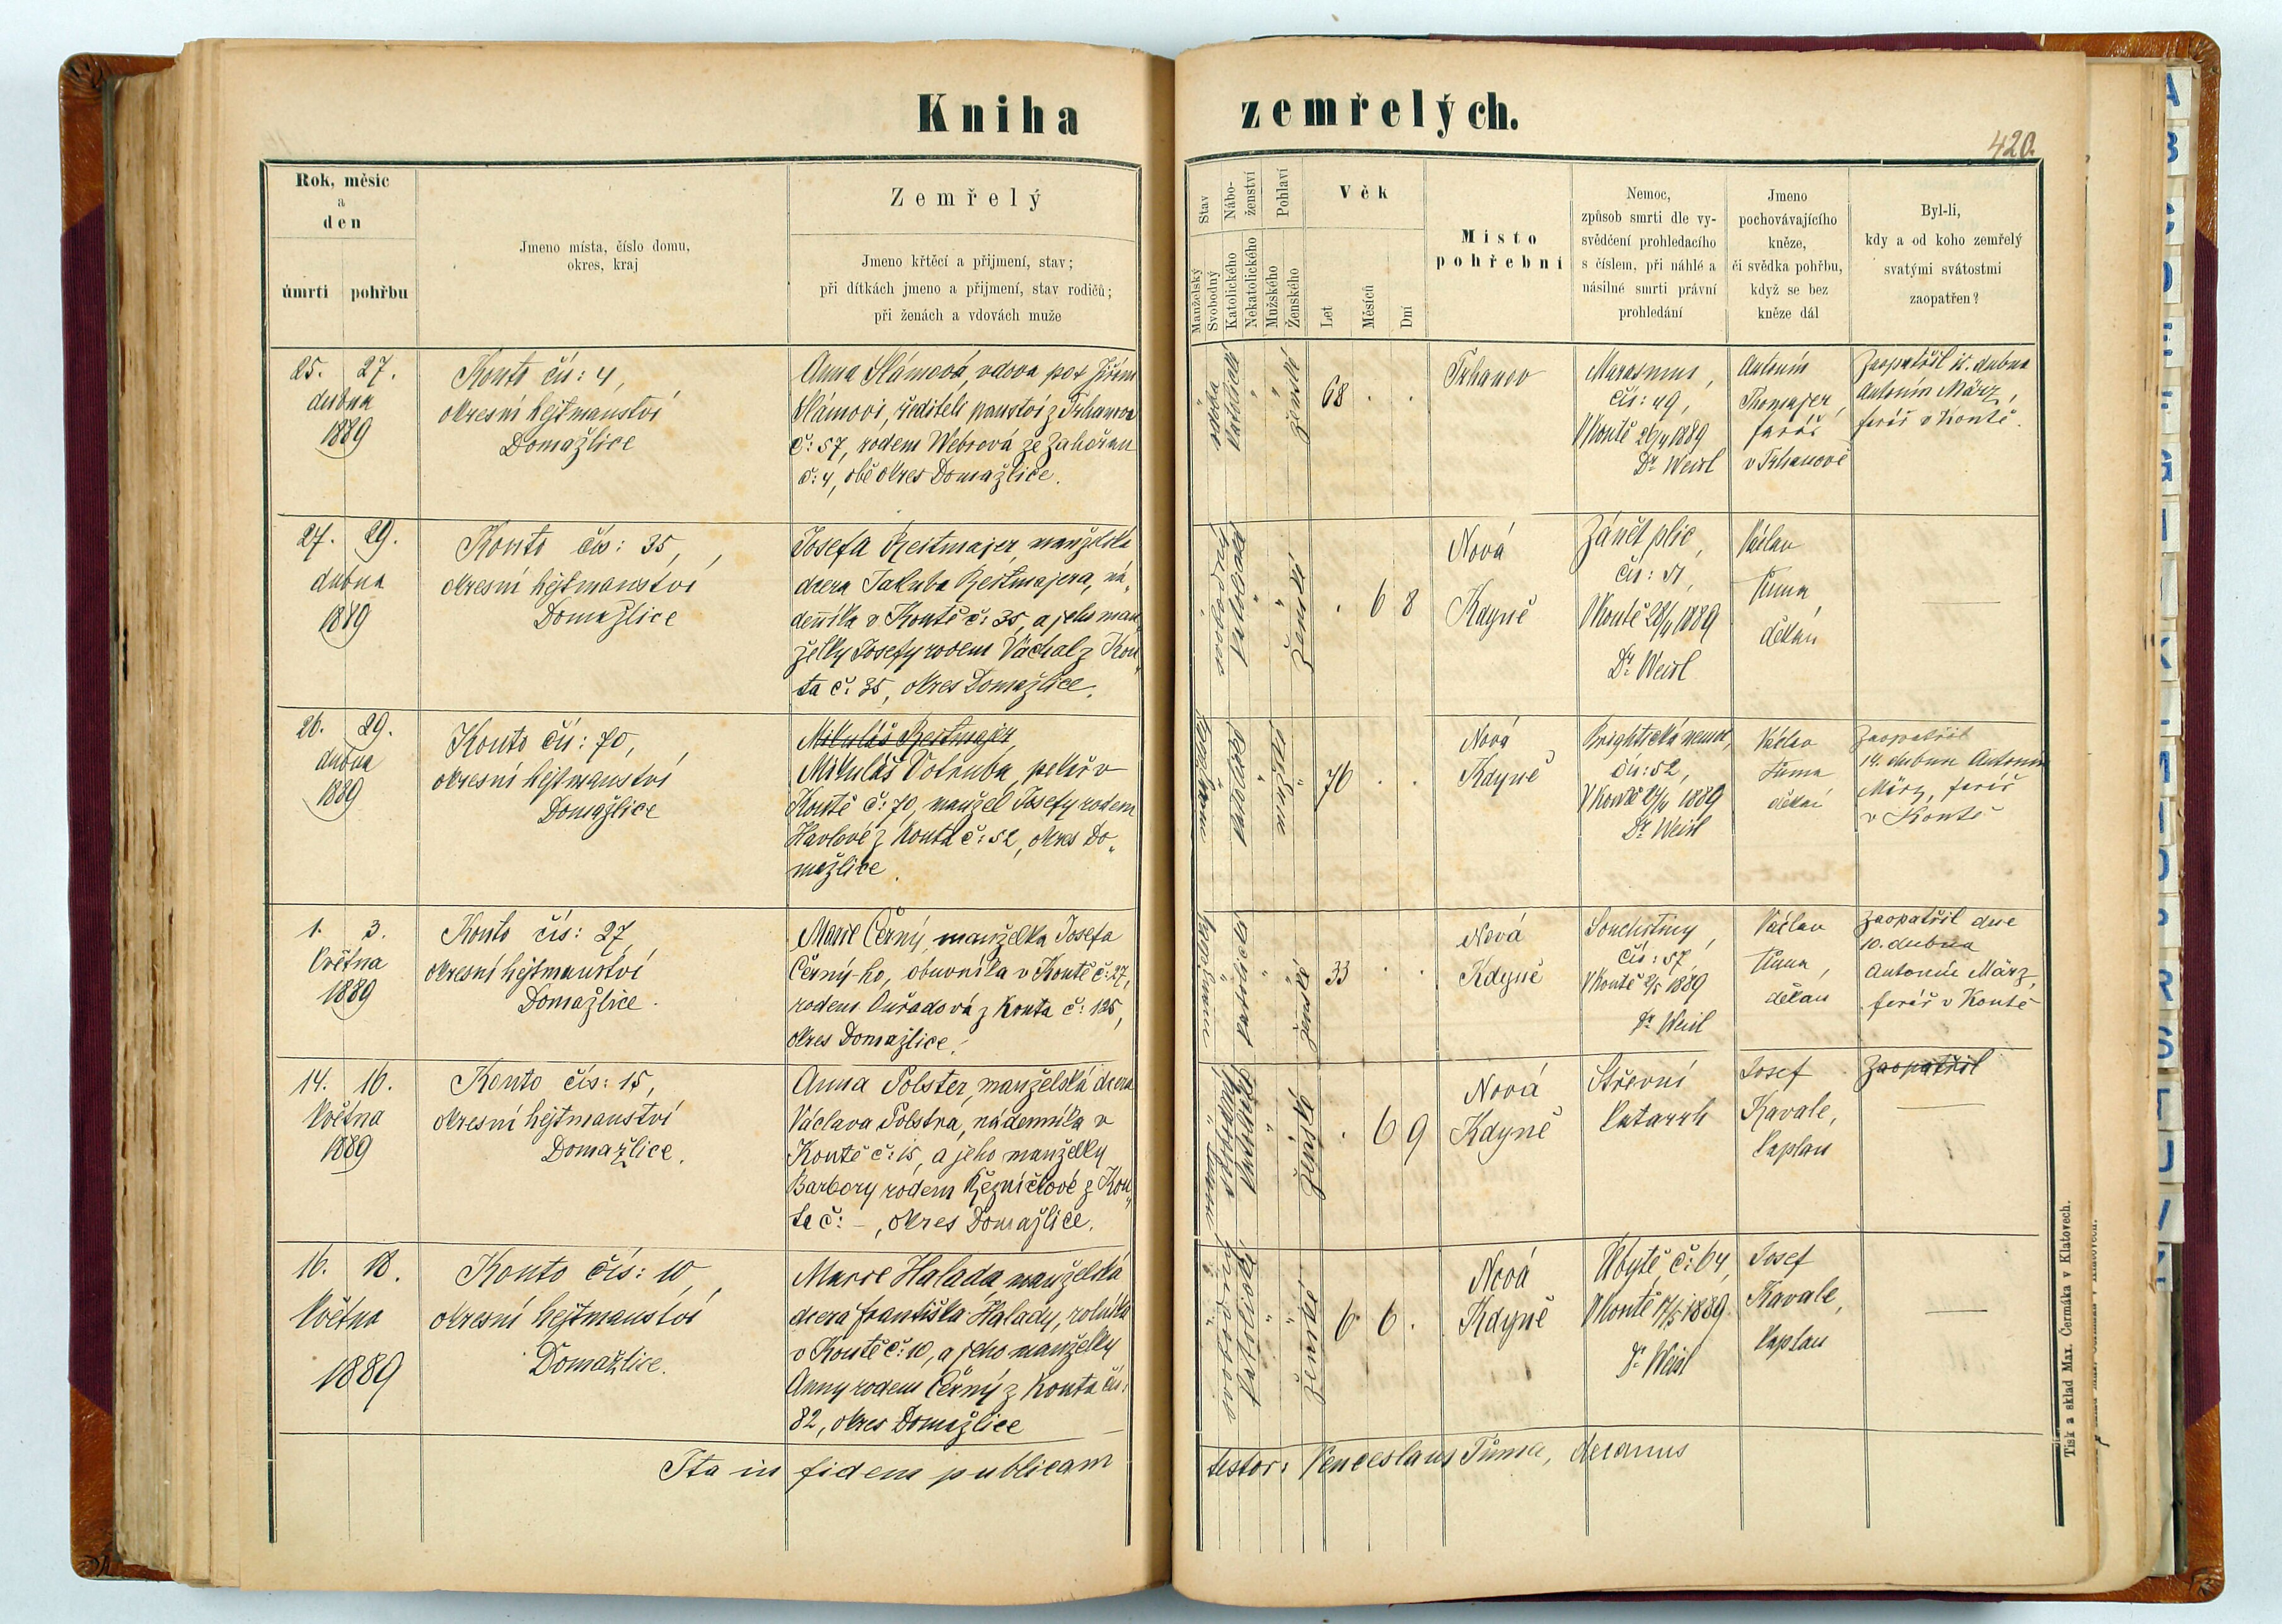 Kniha zemřelých.
420.
Rok, měsíc
a
den
úmrtí pohřbu
Jmeno místa, číslo domu,
okres, kraj
Zemřelý
Jmeno křtěcí a přijmení, stav;
při dítkách jmeno a přijmení, stav rodičů;
při ženách a vdovách muže
Stav
Manželský
Svobodný
Nábo-
ženství
Katolického
Nekatolického
Pohlaví
Mužského
Ženského
Věk
Let
Měsíců
Dní
Místo
pohřební
Nemoc,
způsob smrti dle vy-
svědčení prohledacího
s číslem, při náhlé a
násilné smrti právní
prohledání
Jmeno
pochovávajícího
kněze,
či svědka pohřbu,
když se bez
kněze dál
Byl-li,
kdy a od koho zemřelý
svatými svátostmi
zaopatřen?
25. 27.
dubna
1889
Kouto čís: 4,
okresní hejtmanství
Domažlice
Anna Slámová, vdova po† Jiřím
Slámovi, řediteli panství z Trhanova
č: 57, rodem Webrová ze Zahořan
č: 4, obě okres Domažlice.
vdova
katolické
ženské
68 . .
Trhanov
Marasmus,
čís: 49,
V Koutě 26/4 1889
Dr. Weisl
Antonín
Thomajer,
farář
v Trhanově
Zaopatřil 15. dubna
Antonín März,
farář v Koutě.
27. 29.
dubna
1889
Kouto čís: 35,
okresní hejtmanství
Domažlice
Josefa Reitmajer, manželská
dcera Jakuba Reitmajera, ná-
denníka v Koutě č: 35, a jeho man-
želky Josefy rodem Váchal z Kou-
ta č: 35, okres Domažlice.
svobodný
katolické
ženské
. 6 8
Nová
Kdyně
Zánět plic,
čís: 51,
V Koutě 28/4 1889
Dr. Weisl
Václav
Tůma,
děkan
26. 29.
dubna
1889
Kouto čís: 70,
okresní hejtmanství
Domažlice
Mikuláš Reitmajer,
Mikuláš Votruba, pekař v
Koutě č: 70, manžel Josefy rodem
Havlové z Kouta č: 52, okres Do-
mažlice.
katolické
mužské
76 . .
Nová
Kdyně
Brightická nemoc,
čís: 52,
V Koutě 27/4 1889
Dr. Weisl
Václav
Tůma
děkan
Zaopatřil
14. dubna Antonín
März, farář
v Koutě
1. 3.
Května
1889
Kouto čís: 27,
okresní hejtmanství
Domažlice.
Marie Černý, manželka Josefa
Černý-ho, obuvníka v Koutě č: 27,
rodem Kuřadová z Kouta č: 125,
okres Domažlice.
katolické
ženské
33 . .
Nová
Kdyně
Souchotiny,
čís: 57,
V Koutě 2/5 1889
Dr. Weisl
Václav
Tůma,
děkan
Zaopatřil dne
10. dubna
Antonín März,
farář v Koutě
14. 16.
Května
1889
Kouto čís: 15,
okresní hejtmanství
Domažlice.
Anna Polster, manželská dcera
Václava Polstra, nádenníka v
Koutě č: 15, a jeho manželky
Barbory rodem Řezníčkové z Kou-
ta č: –, okres Domažlice.
katolické
ženské
. 6 9
Nová
Kdyně
Střevní
katarrh
Josef
Kavale,
kaplan
Zaopatřil
16. 18.
Května
1889
Kouto čís: 10,
okresní hejtmanství
Domažlice.
Marie Halada, manželská
dcera Františka Halady, rolníka
v Koutě č: 10, a jeho manželky
Anny rodem Černý z Kouta čís:
82, okres Domažlice
svobodný
katolické
ženské
6 6 .
Nová
Kdyně
Úbytě, č: 64,
V Koutě 17/5 1889.
Dr. Weisl
Josef
Kavale,
kaplan
Ita in fidem publicam testor: Venceslaus Tůma, decanus
Tisk a sklad Max. Čermáka v Klatovech.